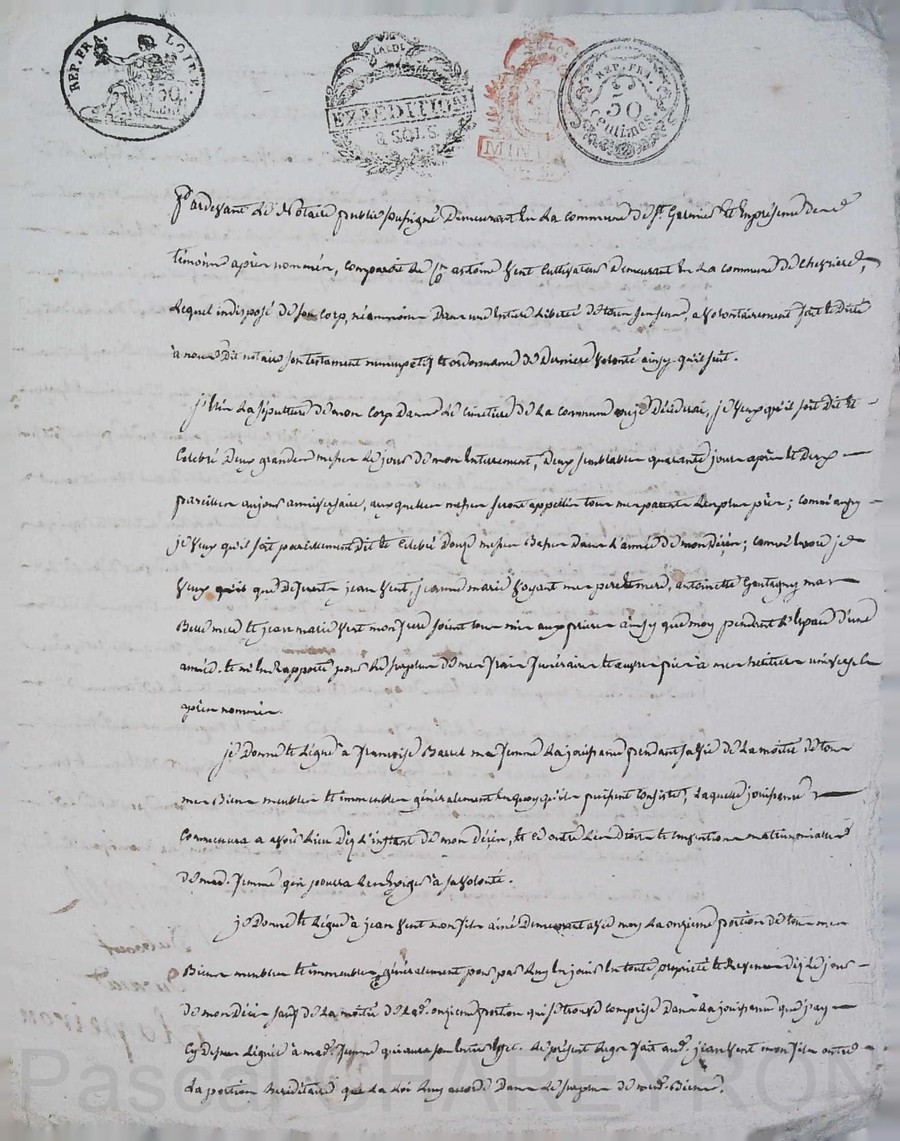 REP. FRA. LOIRE.
50
EXPEDITION
& SOLS.
MIN
REP. FRA.
50
Centimes.
Pardevant Le Notaire public soussigné Demeurant En La commune De St. Galmier Et En présence Des
témoins après nommés, comparut antoine Vent Cultivateur Demeurant En La commune De chevrieres,
Lequel indisposé De son Corp, néanmoins Dans une Entiere Liberté De tous ses sens, a Volontairement fait Et Dicté
à nous Dit notaire son testament nuncupatif Et ordonnance De Derniere Volonté ainsy qu'il suit.
La sépulture De mon Corp Dans Le cimetiere De La commune ou je Décéderai, je Veux qu'il soit Dit Et
Célébré Deux grandes messes Le jour De mon Enterrement, Deux semblables quarante jours après Et Deux
pareilles au jour anniversaire, auxquelles messes seront appellés tous mes parents Les plus près; comme aussy
je Veux qu'il soit pareillement Dit Et Célébré Douze messes Basses Dans L'année De mon Décès; comme Encore je
Veux que Défunts jean Vent, jeanne marie Voyant mes pere Et mere, antoinette mas
Belle mere Et jean marie Vent mon frere soient tous mis aux prieres ainsy que moy pendant L'Espace D'une
année. Et m'En Rapporte pour Le surplus De mes frais funéraires Et auvres pies à mes héritiers universels
après nommés.
je Donne Et Légue à françoise Barcet ma femme La jouissance pendant sa Vie De La moitié De tous
mes Biens meubles Et immeubles généralement En quoy qu'ils puissent Consister, Laquelle jouissance
Commencera a avoir Lieu Dez L'instant De mon Décès, Et ce outre Les Droits Et Conventions matrimoniales
De mad. femme qui pourra Les Exiger à sa Volonté.
je Donne Et Légue à jean Vent mon fils ainé Demeurant avec moy La onzieme portion De tous mes
Biens meubles Et immeubles généralement pour par Luy En jouir En toute propriété Et Revenus Dez Le jour
De mon Décès sauf De La moitié De Lad. onzieme portion qui se trouve comprise Dans La jouissance que j'ay
Cy Dessus Léguée à mad. femme qui aura son Entier Effet. Le présent Legs fait aud. jean Vent mon fils outre
La portion héréditaire que La Loi Luy accorde Dans Le surplus De mesd. Biens.
Pascal CHAREYRON